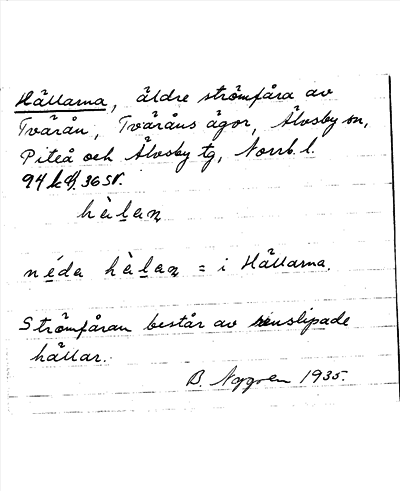 Hällarna, äldre strömfåra av
Tvärån, Tväråns ägor, Älvsby sn,
Piteå och Älvsby tg, Norrb. l.
94 k 36 SV.
hȧ̀lan
néda hȧ̀lan = i Hällarna.
Strömfåran består av renslipade
hällar.
B. Nygren 1935.